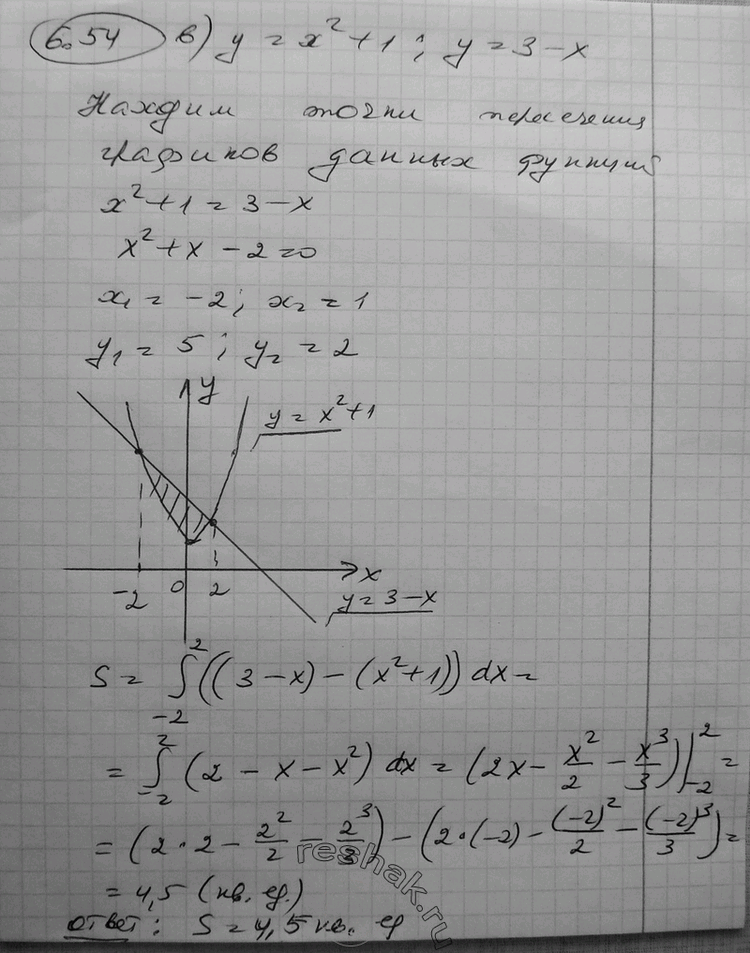 6.54 в) y = x² + 1 ; y = 3 - x
Находим точки пересечения
графиков данных функций
x² + 1 = 3 - x
x² + x - 2 = 0
x₁ = -2; x₂ = 1
y₁ = 5 ; y₂ = 2
y
y = x² + 1
-2 0 2 x
y = 3 - x
S = ∫₋₂² ((3 - x) - (x² + 1)) dx =
= ∫₋₂² (2 - x - x²) dx = (2x - x²/2 - x³/3)|₋₂² =
= (2·2 - 2²/2 - 2³/3) - (2·(-2) - (-2)²/2 - (-2)³/3) =
= 4,5 (кв. ед.)
ответ: S = 4,5 кв. ед
reshak.ru